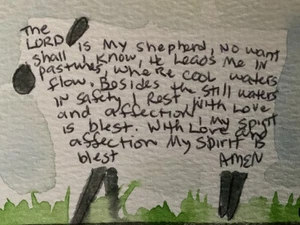 The
LORD is My shepherd, No want
shall I know, He Leads Me IN
pastures, where cool waters
flow. Besides the still waters
IN safety I Rest, With Love
and affection, My spirit
is blest. With Love and
affection My Spirit is
blest AMEN